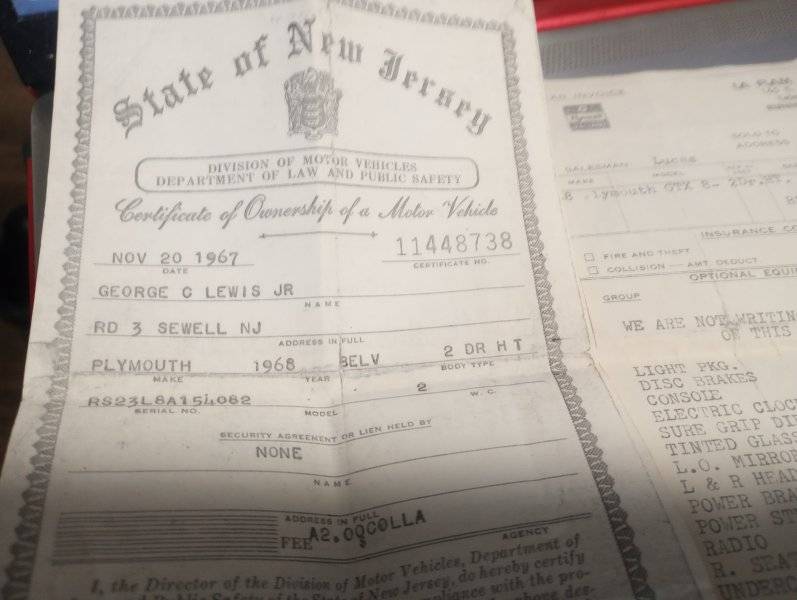 State of New Jersey
DIVISION OF MOTOR VEHICLES
DEPARTMENT OF LAW AND PUBLIC SAFETY
Certificate of Ownership of a Motor Vehicle
NOV 20 1967
DATE
11448738
CERTIFICATE NO.
GEORGE C LEWIS JR
NAME
RD 3 SEWELL NJ
ADDRESS IN FULL
PLYMOUTH 1968 BELV 2 DR H T
MAKE YEAR BODY TYPE
RS23L8A154082 2
SERIAL NO. MODEL W. C.
SECURITY AGREEMENT OR LIEN HELD BY
NONE
NAME
ADDRESS IN FULL
FEE $ A2.00COLLA
AGENCY
I, the Director of the Division of Motor Vehicles, Department of
Public Safety of the State of New Jersey, do hereby certify
with the pro-
INVOICE
SOLD TO
ADDRESS
SALESMAN Lucas
MAKE MODEL
Plymouth GTX 8- 2Dr.
INSURANCE
FIRE AND THEFT
COLLISION AMT. DEDUCT
OPTIONAL
GROUP
WE ARE NOT WRITIN
OF THIS
LIGHT PKG.
DISC BRAKES
CONSOLE
ELECTRIC CLOC
SURE GRIP DI
TINTED GLASS
L.O. MIRRO
L & R HEAD
POWER BRA
POWER ST
RADIO
R. SEAT
UNDERC